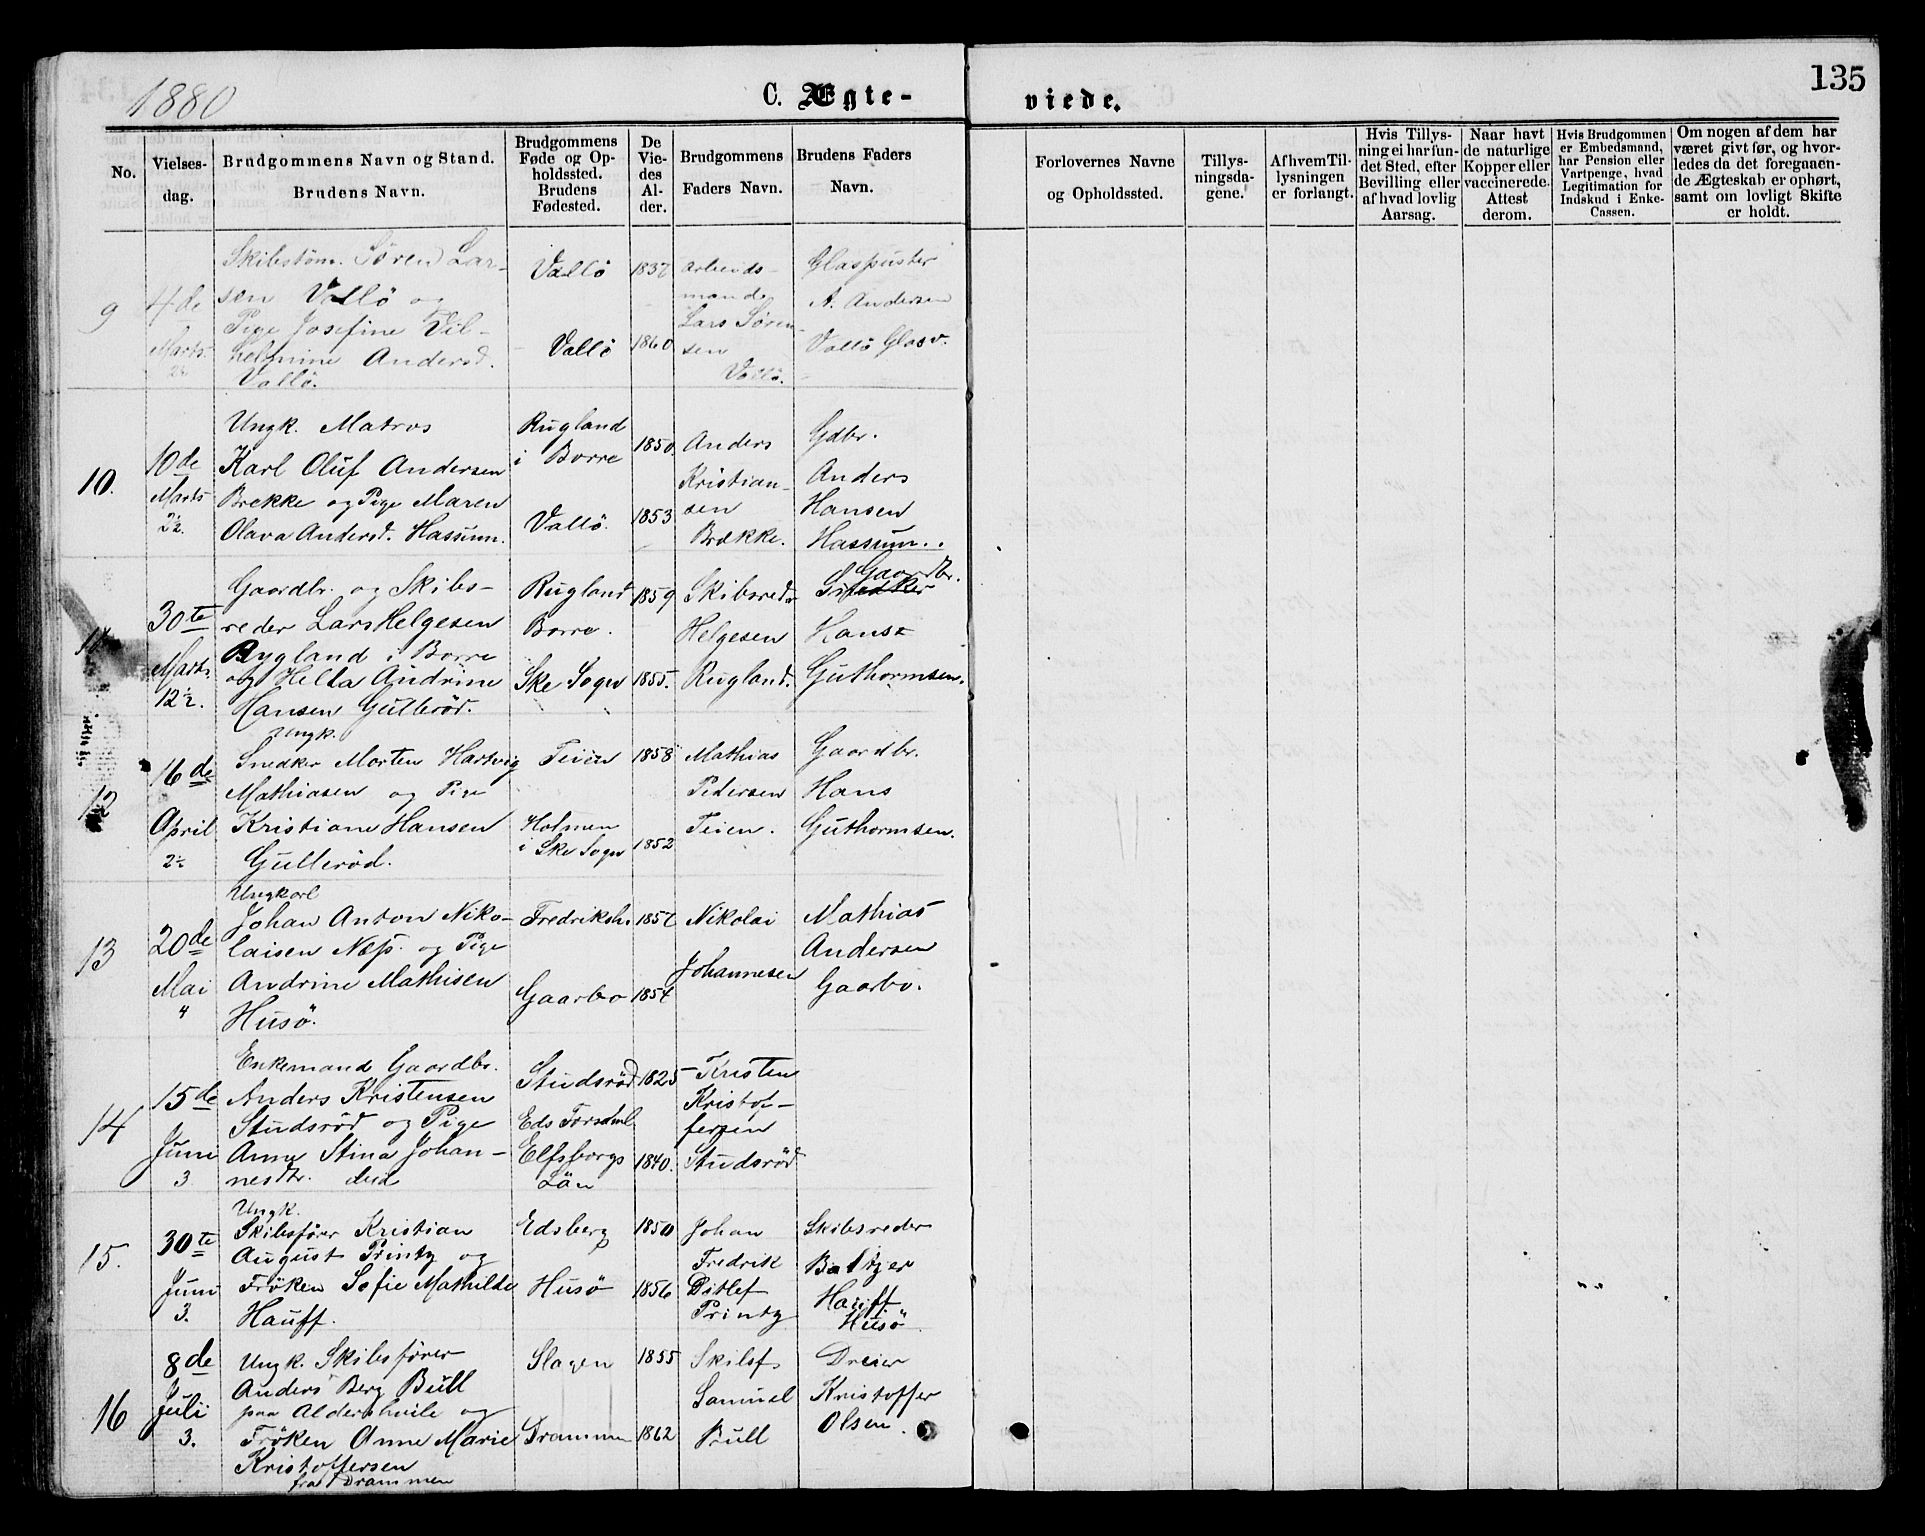 1880
C. Ægte-
viede.
135
No.
Vielses-
dag.
Brudgommens Navn og Stand.
Brudens Navn.
Brudgommens
Føde og Op-
holdssted.
Brudens
Fødested.
De
Vie-
des
Al-
der.
Brudgommens
Faders Navn.
Brudens Faders
Navn.
Forlovernes Navne
og Opholdssted.
Tillys-
ningsda-
gene.
Af hvem Til-
lysningen
er forlangt.
Hvis Tillys-
ning ei har fun-
det Sted, efter
Bevilling eller
af hvad lovlig
Aarsag.
Naar havt
de naturlige
Kopper eller
vaccinerede.
Attest
derom.
Hvis Brudgommen
er Embedsmand,
har Pension eller
Vartpenge, hvad
Legitimation for
Indskud i Enke-
Cassen.
Om nogen af dem har
været givt før, og hvor-
ledes da det foregaaen-
de Ægteskab er ophørt,
samt om lovligt Skifte
er holdt.
9
4de
Marts
2½
Skibstöm. Sören Lar-
sen Vallö og
Pige Josefine Vil-
helmine Andersd.
Vallö.
Vallö
Vallö
1837
1860
Arbeids-
mand
Lars Sören-
sen
Vallö.
Glaspuster
A. Andersen
Vallö Glasv.
10.
10de
Marts
2½.
Ungk. Matros
Karl Oluf Andersen
Brekke og Pige Maren
Olava Andersd. Hassum.
Rugland
i Borre
Vallö.
1850.
1853
Anders
Kristian-
sen
Brekke.
Gdbr.
Anders
Hansen
Hassum.
11
30te
Marts.
12½.
Gaardbr. og Skibs-
reder Lars Helgesen
Rygland i Borre
og Hella Andrine
Hansen Gullerød.
Rugland
Borre.
Ske Sogn
1859
1855.
Skibsred.
Helgesen
Rugland.
Gaardbr.
Snedker
Hans
Guthormsen.
12
16de
April
2½
Ungk.
Snedker Morten Hartvig
Mathiasen og Pige
Kristiane Hansen
Gullerød.
Teien
Holmen
i Ske Sogn
1858
1852
Mathias
Pedersen
Teien.
Gaardbr.
Hans
Guthormsen.
13
20de
Mai
4
Ungkarl
Johan Anton Niko-
laisen Næs. og Pige
Andrine Mathisen
Husö.
Fredriksh.
Gaarbo
1857
1854
Nikolai
Johannesen
Mathias
Andersen
Gaarbo.
14
15de
Juni
3
Enkemand Gaardbr.
Anders Kristensen
Studsröd og Pige
Anne Stina Johan-
nesdtr. död
Studsröd
Eds Forsaml.
Elfsborgs
Län
1825
1840.
Kristen
Kristof-
fersen
Studsröd
15.
30te
Juni
3.
Ungk.
Skibsförer Kristian
August Printz og
Fröken Sofie Mathilde
Hauff.
Edsberg
Husö
1850
1856
Johan
Fredrik
Ditlef
Printz
Skibsreder
Baltzer
Hauff
Husö
" "
16
8de
Juli
3.
Ungk. Skibsförer
Anders Berg Bull
paa Aldershvile og
Fröken Anne Marie
Kristoffersen
fra Drammen
Slagen
Drammen
1855
1862
Skibsf.
Samuel
Bull
Dreier
Kristoffer
Olsen.